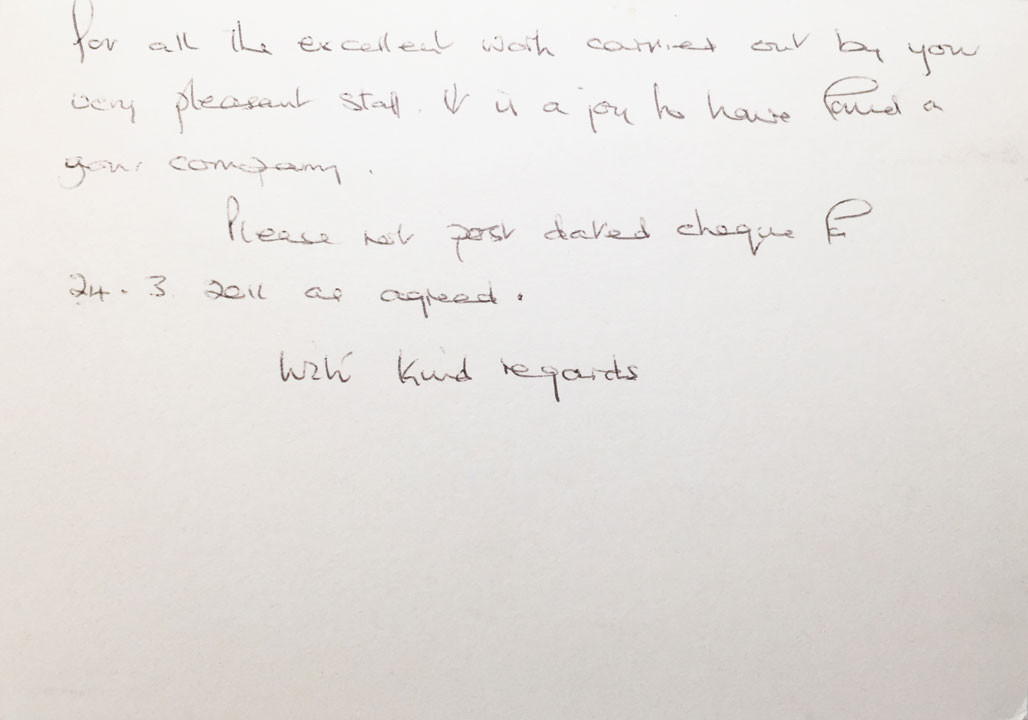 for all the excellent work carried out by you
very pleasant staff. It is a joy to have found a
your company.
Please not post dated cheque to
24.3.2011 as agreed.
With Kind regards